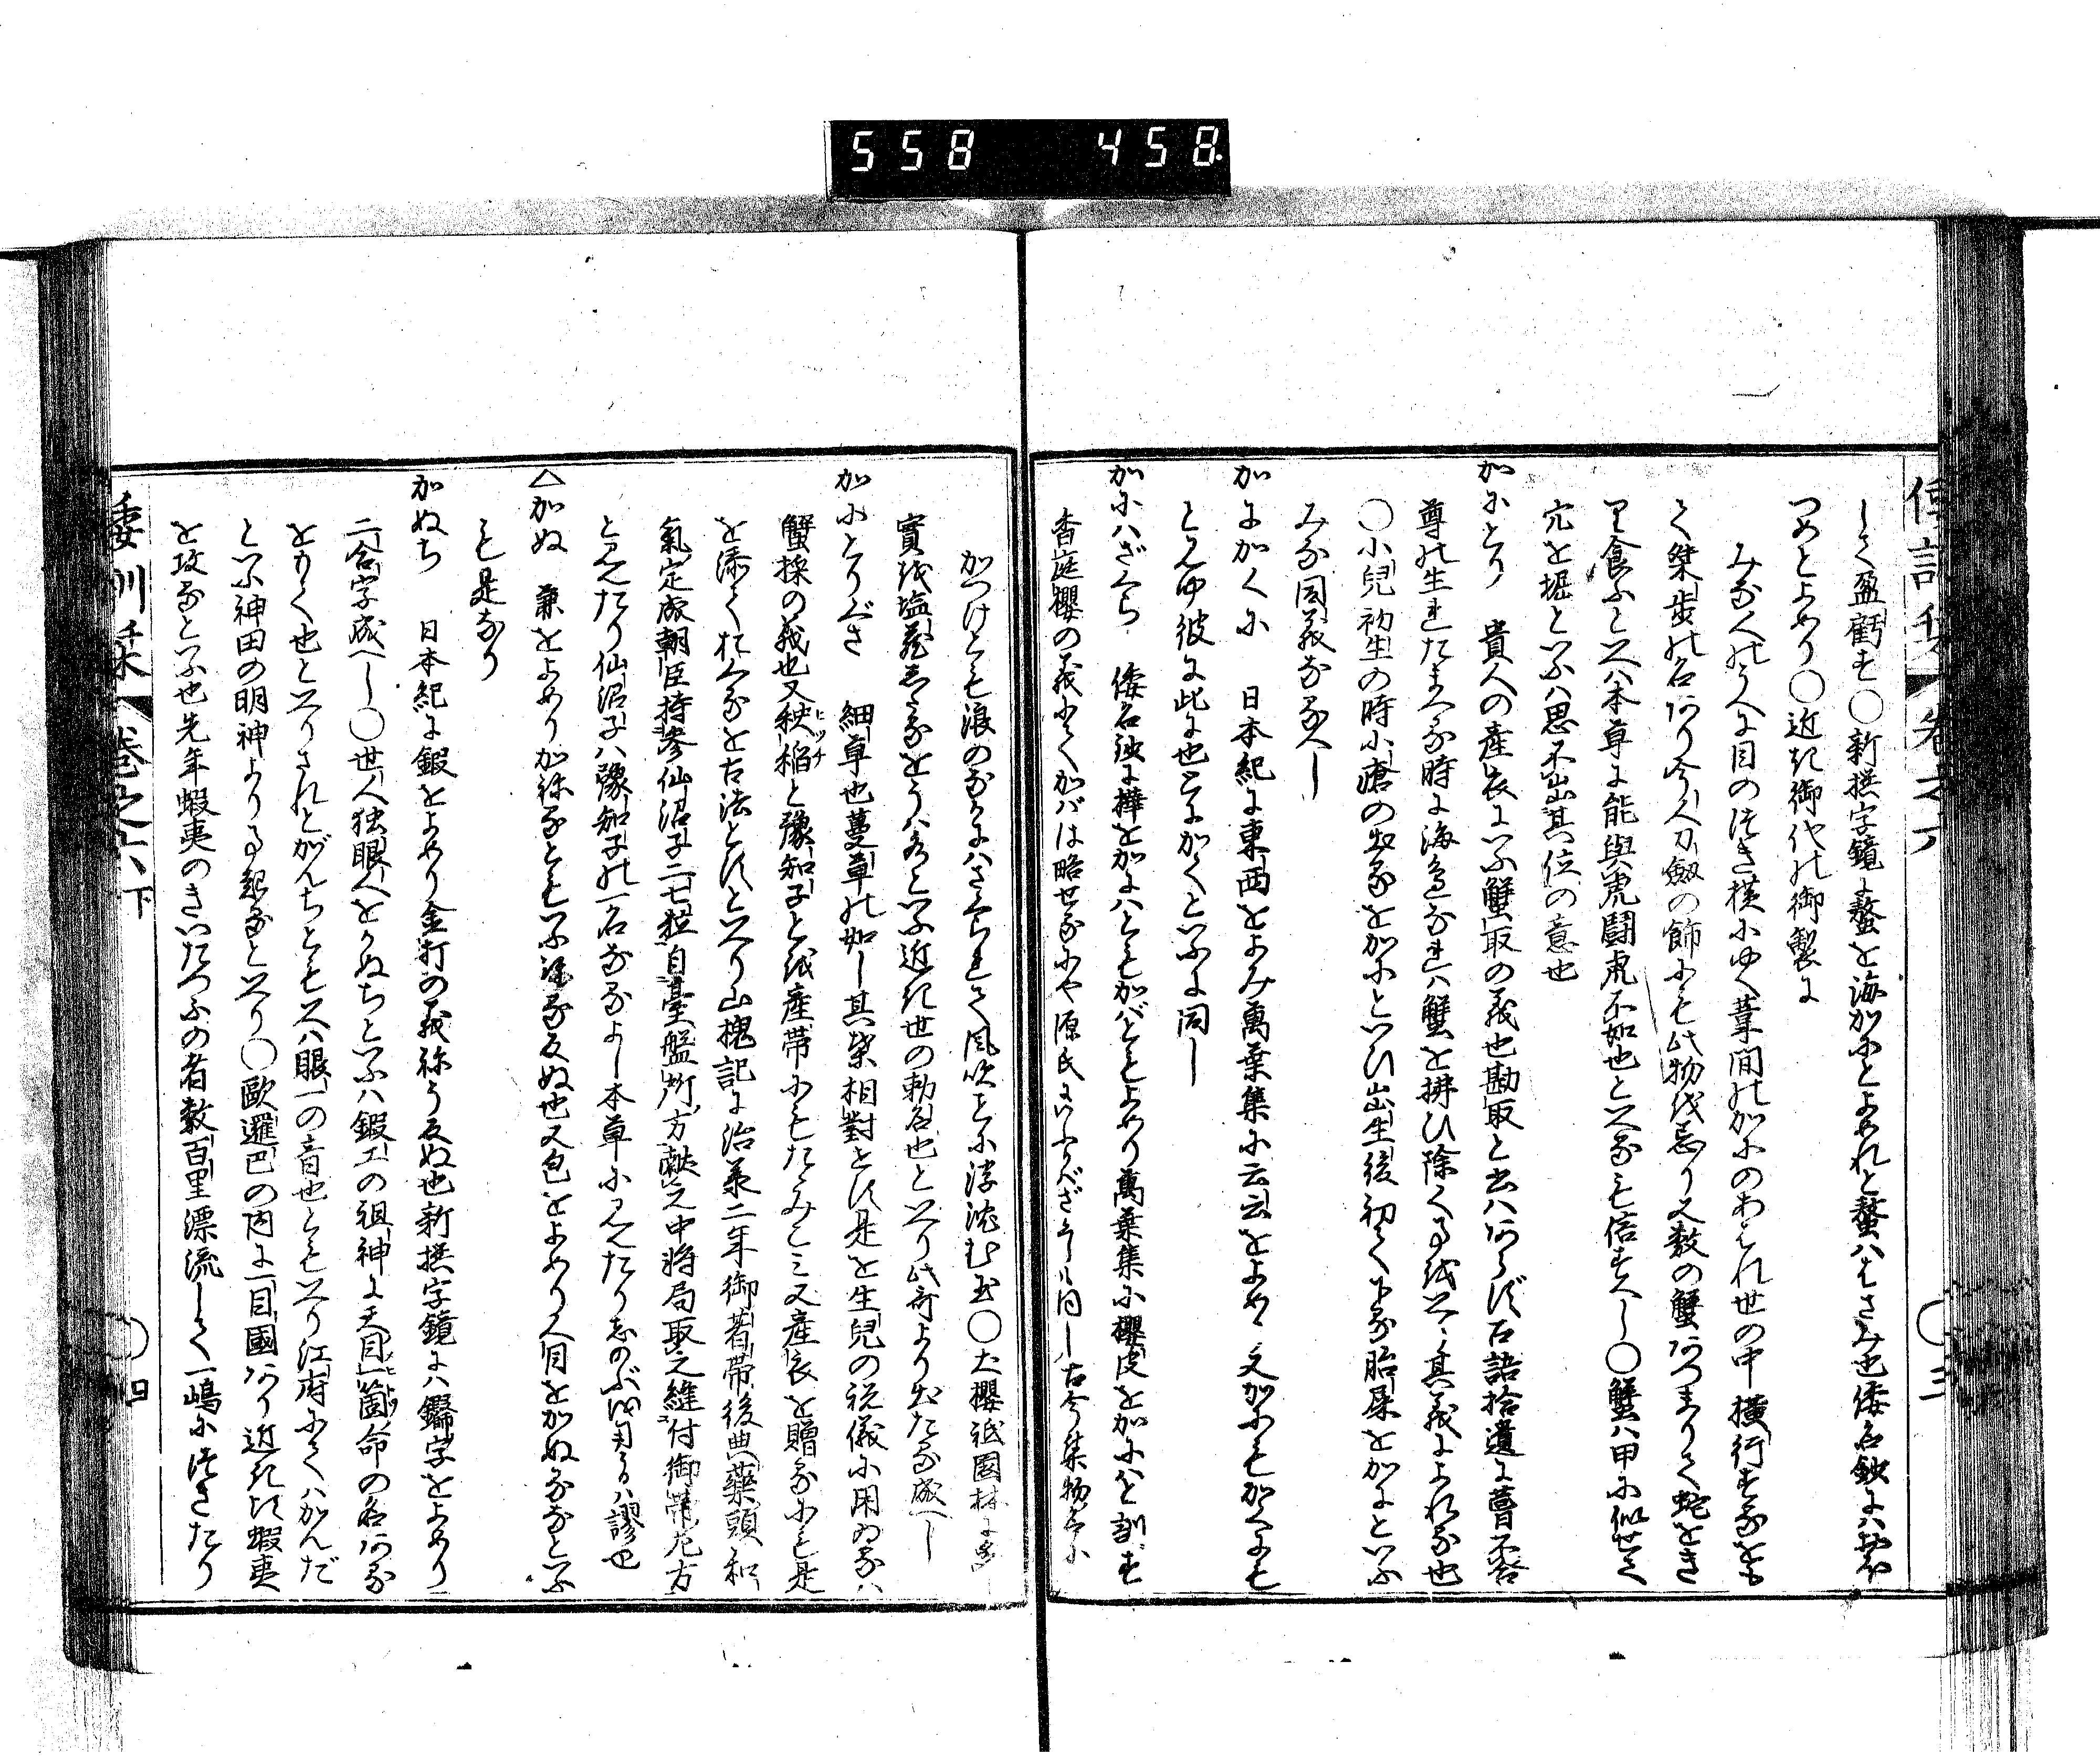 558 458
して盈虧す○新撰字鏡に螯を海かにとよめれと螯ハはさみ也倭名鈔にハおほ
つめとよめり○近き御代の御製に
みな人のうへに目のつき横にゆく葦間のかにのあはれ世の中 横行するをも
て桀歩の名あり今人刀劔の飾にも此物を忌り又数の蟹あつまりて蛇をき
り食ふといへハ本草に能與虎闘虎不如也といへるも信すへし○蟹ハ甲に似せて
穴を堀といふハ思不出其位の意也
かにとり 貴人の産衣にいふ蟹取の義也勘取と書ハあらす古語拾遺に葺不合
尊の生れたまへる時に海邉なれハ蟹を拂ひ除く事をいへり其義によれる也
○小兒初生の時小瘡の出るをかにといひ出生後初て下る胎屎をかにといふ
みな同義なるへし
かにかくに 日本紀に東西をよみ萬葉集に云云をよめり文かにもかくにも
とみゆ彼に此に也とにかくといふに同し
かにハざくら 倭名鈔に樺をかにハともかばともよめり萬葉集に櫻皮をかにハと訓す
香庭櫻の義にてかバは略せるにや源氏にいふかバざくらハ同し古今集物名に
かつけとも浪のなかにハさくられて風吹ことに浮沈む玉○大櫻祗園林に多し
實を塩藏するをうハ名といふ近き世の勅名也といへり此哥より出たる成へし
かにとりぐさ 細草也蔓草の如し其葉相對とす是を生兒の祝儀に用ゐるハ
蟹採の義也又秧稲と豫知子とを産帯にもたゝみこミ又産衣を贈るにも是
を添ておくるを古法とすといへり山槐記に治承二年御着帯後典藥頭和
氣定成朝臣持參仙沼子二七粒自臺盤所方献之中将局取之縫付御帯左方
とみえたり仙沼子ハ豫知子の一名なるよし本草にみえたりしのぶを用うるハ謬也
△かぬ 兼をよめりか祢るともいふ祢る反ぬ也又包をよめり人目をかぬるなといふ
も是なり
かぬち 日本紀に鍜をよめり金打の義祢う反ぬ也新撰字鏡にハ鑰字をよめり
二合字成へし○世人独眼人をかぬちといふハ鍜工の祖神に天目一箇命の名ある
をもて也といへりされとがんちともいへハ眼一の音也ともいへり江府にてハかんだ
といふ神田の明神より事起るといへり○歐邏巴の内に一目國あり近きに蝦夷
を攻るといふ也先年蝦夷のきいたつふの者数百里漂流して一嶋につきたり
倭訓栞 巻之六下 ○四